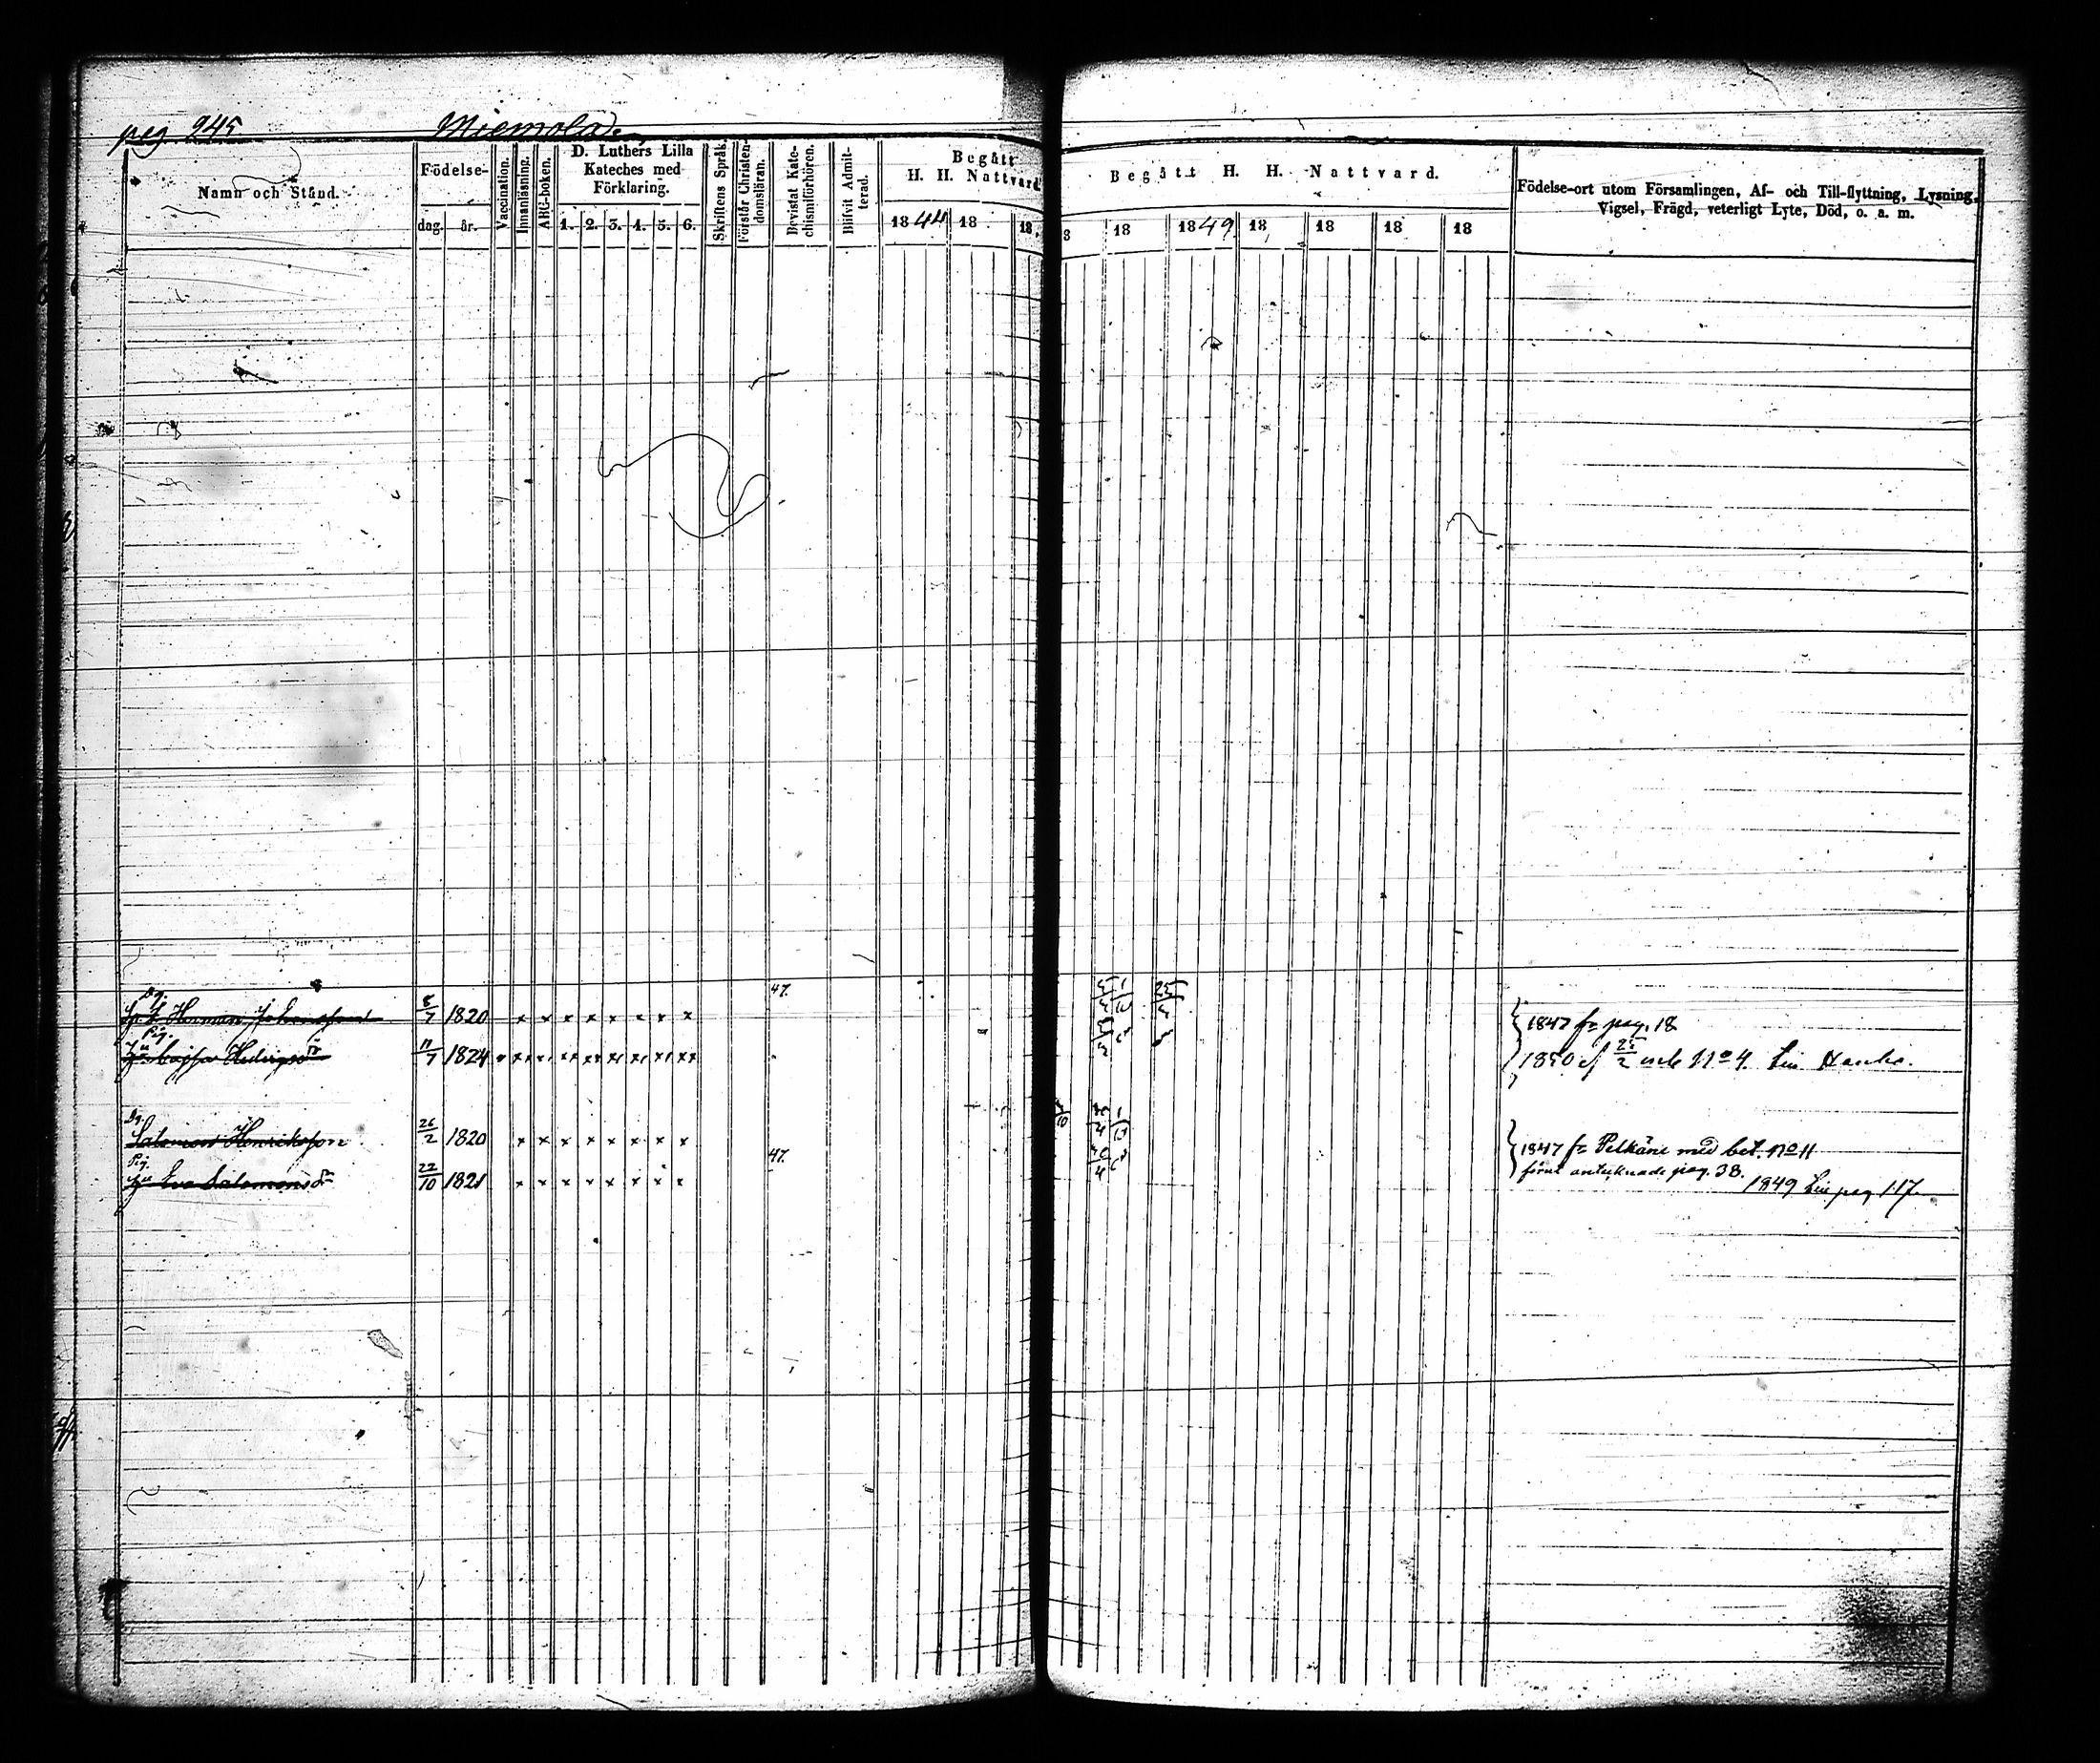 pag. 245. Miemola.
Namn och Stånd.
Födelse-
dag. år.
Vaccination.
Innanläsning.
ABC-boken.
D. Luthers Lilla
Kateches med
Förklaring.
1. 2. 3. 4. 5. 6.
Skriftens Språk.
Förstår Christen-
domsläran.
Bevistat Kate-
chismiförhören.
Blifvit Admit-
terad.
Begått
H. H. Nattvard
1844 18 18
Begått H. H. Nattvard.
18 1849 18 18 18 18
Födelse-ort utom Församlingen, Af- och Till-flyttning, Lysning,
Vigsel, Frägd, veterligt Lyte, Död, o. a. m.
47.
Herman Johansson 5/7 1820 x x x x x x x x
1847 fr pag. 18
Pig.
Hu Hedvigsdr 11/7 1824
1850 25/2 No 4. Hauho.
Dg.
Salomon Henriksson 26/2 1820 x x x x x x x x
1847 fr Pelkäne med bet. No 11
Pig. 47.
Hu Eva Salomonsdr 22/10 1821 x x x x x x x x
förut antecknade pag. 38.
1849 pag 117.